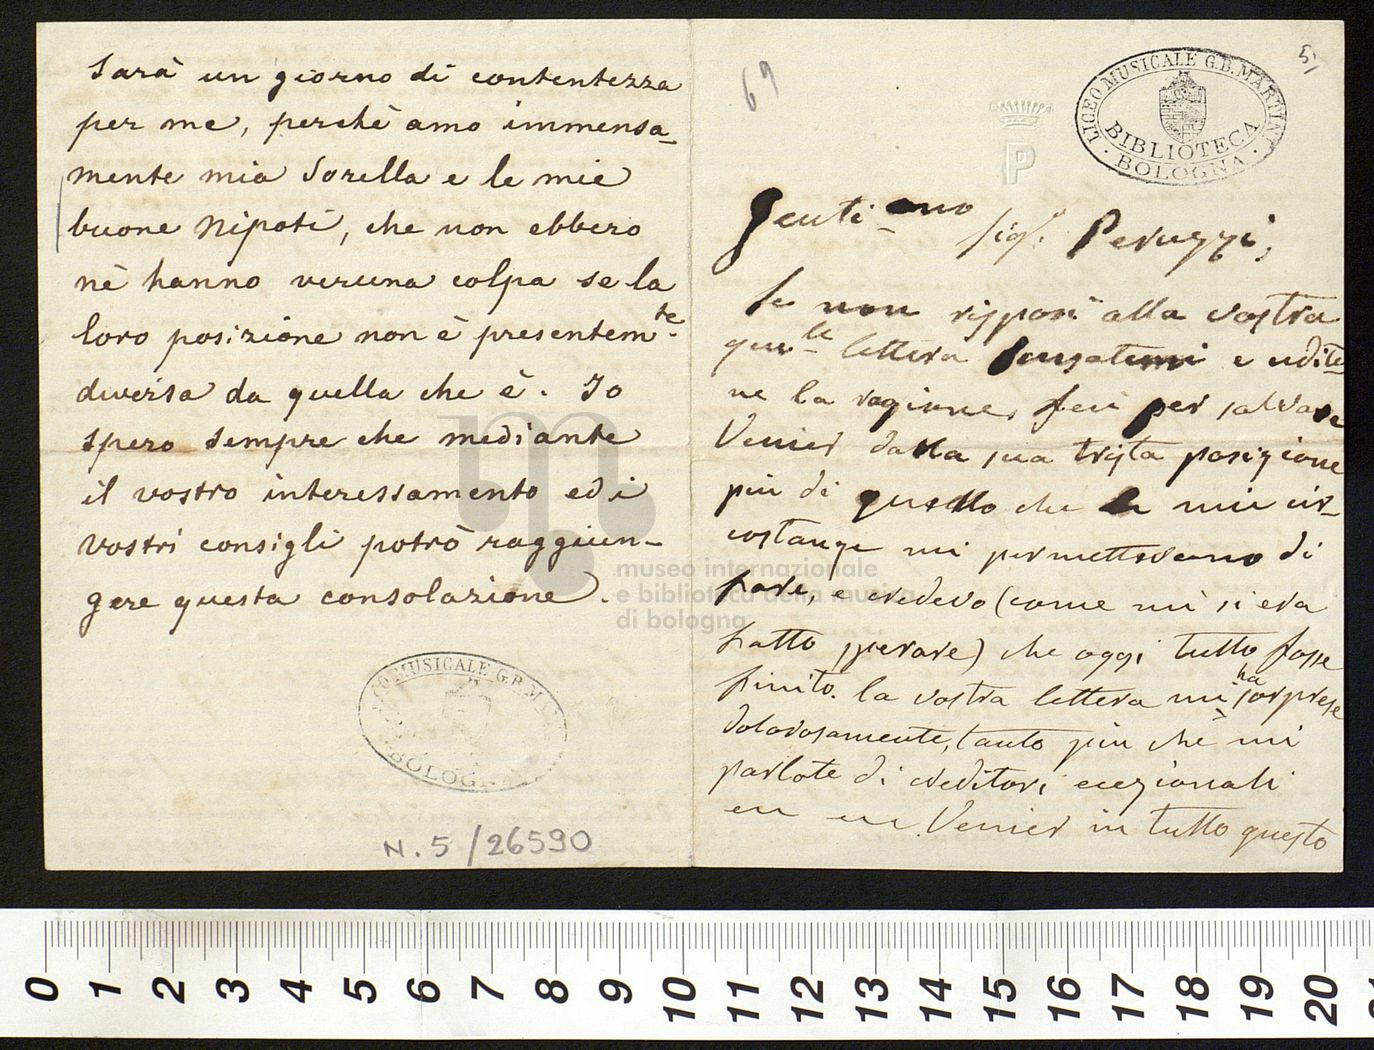 sarà un giorno di contentezza
per me, perchè amo immensa-
mente mia Sorella e le mie
buone Nipoti, che non ebbero
nè hanno veruna colpa se la
loro posizione non è presentemte
diversa da quella che è. Io
spero sempre che mediante
il vostro interessamento ed i
vostri consigli potrò raggiun-
gere questa consolazione.
LICEO MUSICALE G.B. MARTINI
BOLOGNA
N. 5/26590
69
5,
LICEO MUSICALE G.B. MARTINI
BIBLIOTECA
BOLOGNA
P
Genti-mo Sigr. Peruzzi,
Se non risposi alla vostra
lettera scusatemi e udite-
ne la ragione, feci per salvare
Venier dalla sua trista posizione
più di quello che le mie cir-
costanze mi permettevano di
fare, e credevo (come mi si era
fatto sperare) che oggi tutto fosse
finito. la vostra lettera mi ha sorprese
dolorosamente, tanto più chè mi
parlate di creditori eccezionali
Venier in tutto questo
museo internazionale
e biblioteca della musica
di bologna
0 1 2 3 4 5 6 7 8 9 10 11 12 13 14 15 16 17 18 19 20